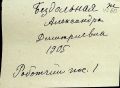 Бездольная
Александра
Дмитриевна
1905
Рабочий пос. 1